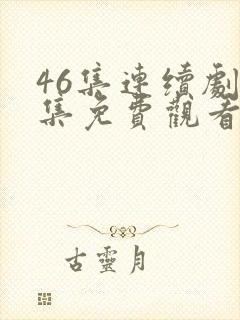 46集連續劇
集免費觀看
古靈月